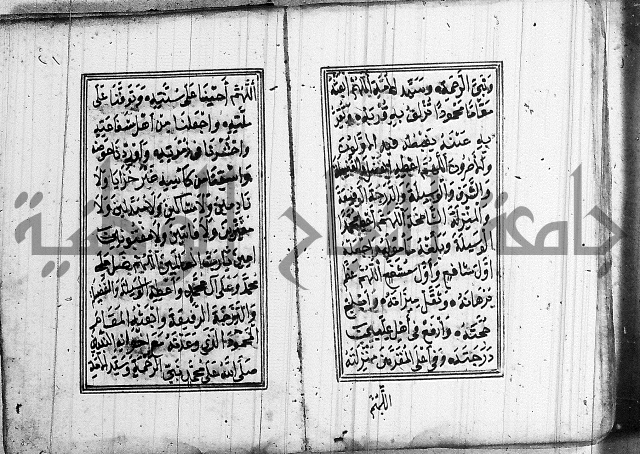 ونبي الرحمة وسيد الأمة اللهم ابعثه
مقاما محمودا تزلف به قربه وتقر
به عينه يغبطه فيه الأولون
والآخرون اللهم أعطه الفضل والفضيلة
والشرف والوسيلة والدرجة الرفيعة
والمنزلة الشامخة اللهم أعط محمدا
الوسيلة وبلغه مأموله واجعله
أول شافع وأول مشفع اللهم عظم
برهانه وثقل ميزانه وأبلج
حجته وارفع في أهل عليين
درجته وفي أعلى المقربين منزلته
اللهم
اللهم أحينا على سنته وتوفنا على
ملته واجعلنا من أهل شفاعته
واحشرنا في زمرته وأوردنا حوضه
واسقنا من كأسه غير خزايا ولا
نادمين ولا شاكين ولا مبدلين ولا
مغيرين ولا فاتنين ولا مفتونين
آمين يا رب العالمين اللهم صل على
محمد وعلى آل محمد وأعطه الوسيلة والفضيلة
والدرجة الرفيعة وابعثه المقام
المحمود الذي وعدته مع إخوانه النبيين
صلى الله على محمد نبي الرحمة وسيد الأمة
جامعة النجاح الوطنية